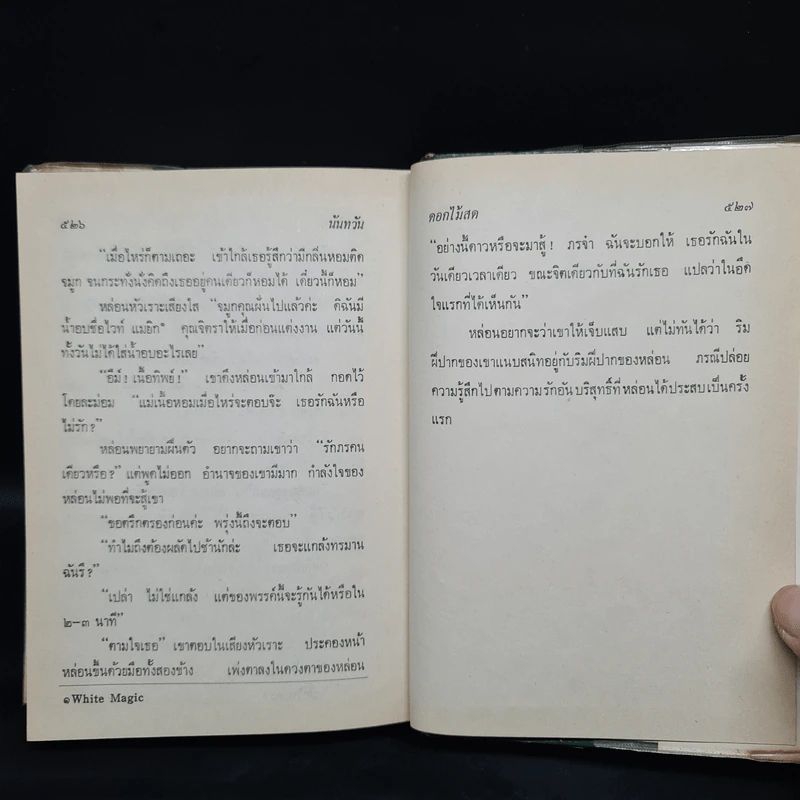 ๕๒๖ นันทวัน
“เมื่อไหร่ก็ตามเถอะ เข้าใกล้เธอรู้สึกว่ามีกลิ่นหอมติด
จมูก จนกระทั่งนั่งคิดถึงเธออยู่คนเดียวก็หอมได้ เดี๋ยวนี้ก็หอม”
หล่อนหัวเราะเสียงใส “จมูกคุณฝั่นไปแล้วค่ะ ดิฉันมี
น้ำอบชื่อไวท์ แมยิก๑ คุณจิตราให้เมื่อก่อนแต่งงาน แต่วันนี้
ทั้งวันไม่ได้ใส่น้ำอบอะไรเลย”
“อืม์! เนื้อทิพย์!” เขาดึงหล่อนเข้ามาใกล้ กอดไว้
โดยละม่อม “แม่เนื้อหอมเมื่อไหร่จะตอบจ๊ะ เธอรักฉันหรือ
ไม่รัก?”
หล่อนพยายามฝืนตัว อยากจะถามเขาว่า “รักภรคน
เดียวหรือ?” แต่พูดไม่ออก อำนาจของเขามีมาก กำลังใจของ
หล่อนไม่พอที่จะสู้เขา
“ขอตรึกตรองก่อนค่ะ พรุ่งนี้ถึงจะตอบ”
“ทำไมถึงต้องผลัดไปช้านักล่ะ เธอจะแกล้งทรมาน
ฉันรึ?”
“เปล่า ไม่ใช่แกล้ง แต่ของพรรค์นี้จะรู้กันได้หรือใน
๒–๓ นาที”
“ตามใจเธอ” เขาตอบในเสียงหัวเราะ ประคองหน้า
หล่อนขึ้นด้วยมือทั้งสองข้าง เพ่งตาลงในดวงตาของหล่อน
๑ White Magic
ดอกไม้สด ๕๒๗
“อย่างนี้ดาวหรือจะมาสู้! ภรจ๋า ฉันจะบอกให้ เธอรักฉันใน
วันเดียวเวลาเดียว ขณะจิตเดียวกับที่ฉันรักเธอ แปลว่าในอึด
ใจแรกที่ได้เห็นกัน”
หล่อนอยากจะว่าเขาให้เจ็บแสบ แต่ไม่ทันได้ว่า ริม
ฝีปากของเขาแนบสนิทอยู่กับริมฝีปากของหล่อน ภรณีปล่อย
ความรู้สึกไปตามความรักอันบริสุทธิ์ที่หล่อนได้ประสบเป็นครั้ง
แรก